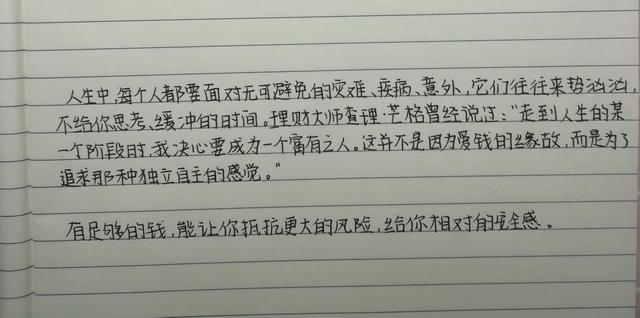 人生中,每个人都要面对无可避免的灾难、疾病、意外,它们往往来势汹汹,
不给你思考、缓冲的时间。理财大师查理·芒格曾经说过:“走到人生的某
一个阶段时,我决心要成为一个富有之人。这并不是因为爱钱的缘故,而是为了
追求那种独立自主的感觉。”
有足够的钱,能让你抵抗更大的风险,给你相对的安全感。